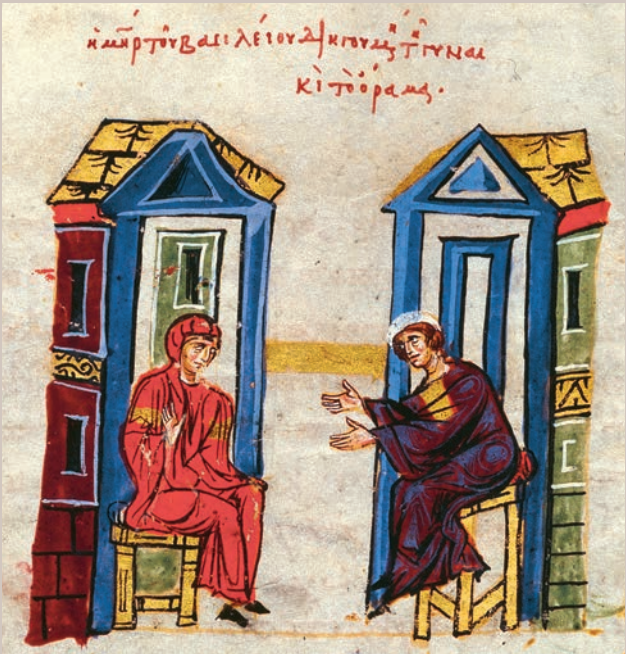 ἡ μῆρ τοῦ βασιλείου διηγουμ τῆ γυναι
κὶ τὸ ὅραμα.